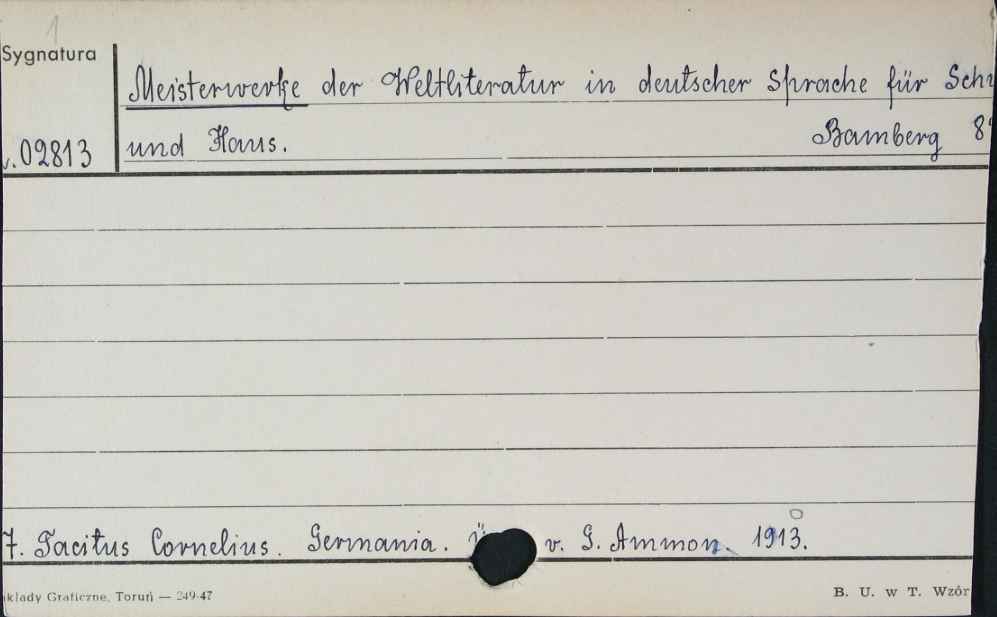 1
Sygnatura
Meisterwerke der Weltliteratur in deutscher Sprache für Sch
v.02813 und Haus. Bamberg 8°
7. Tacitus Cornelius. Germania. v. G. Ammon. 1913.
kłady Graficzne, Toruń — 249-47 B. U. w T. Wzór